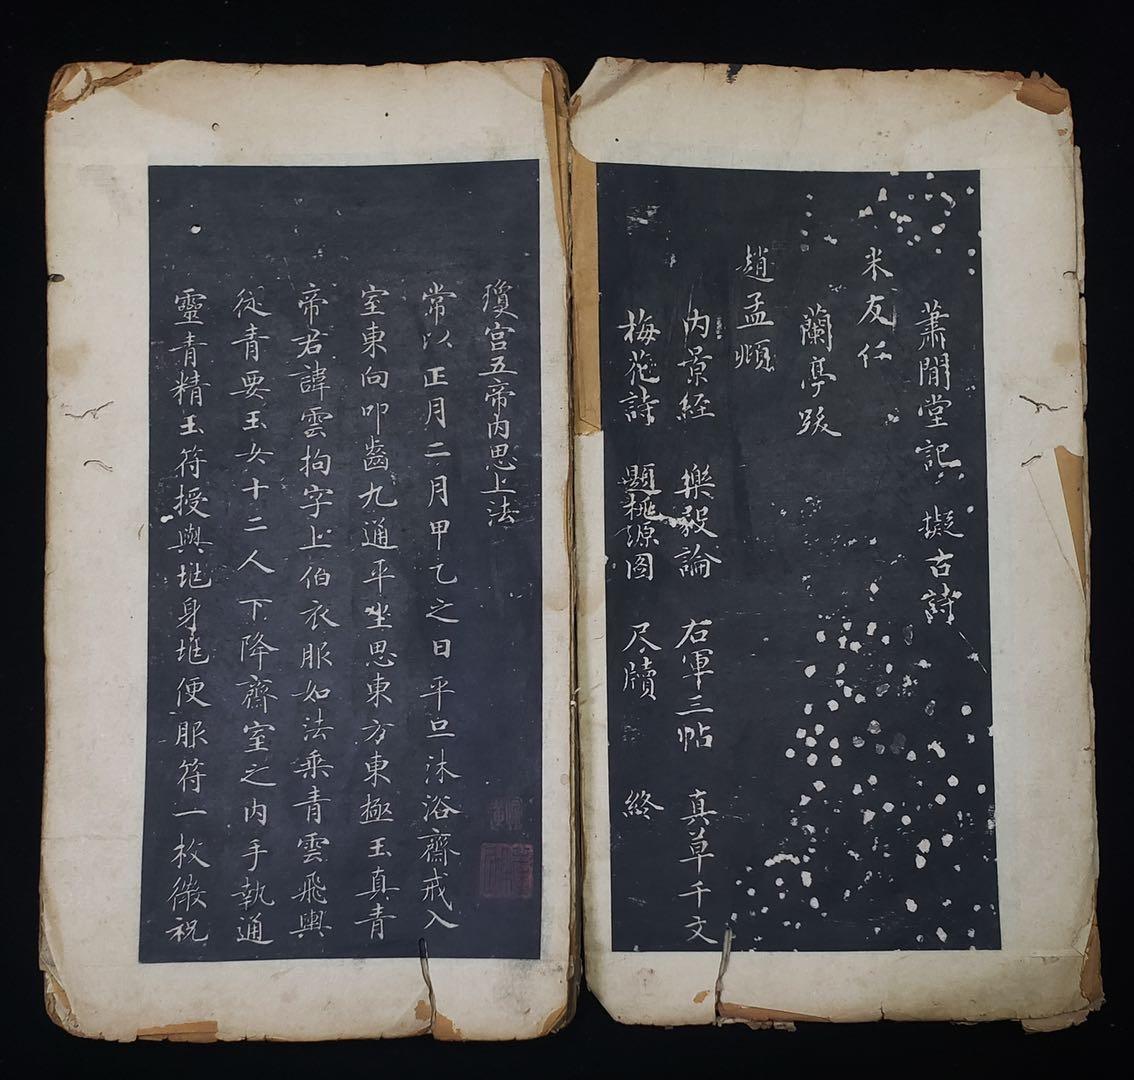 蕭閒堂記 擬古詩
米友仁
蘭亭跋
趙孟頫
內景經 樂毅論 右軍三帖 真草千文
梅花詩 題桃源图 尺牘 終
瓊宫五帝內思上法
常以正月二月甲乙之日平旦沐浴齋戒入
室東向叩齒九通平坐思東方東極玉真青
帝君諱雲拘字上伯衣服如法乘青雲飛輿
從青要玉女十二人下降齋室之内手執通
靈青精玉符授與地身地便服符一枚微祝